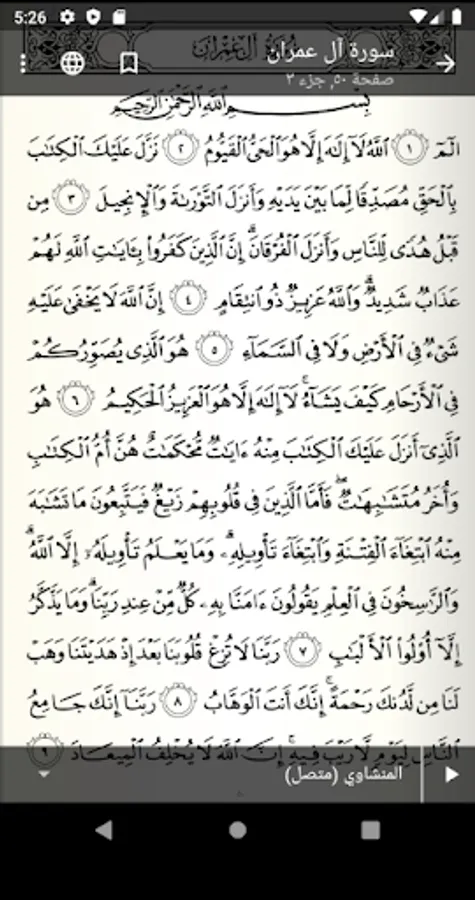 5:26
سورة آل عمران
صفحة ٥٠, جزء ٢
سُورَةُ آلِ عِمْرَانَ
بِسْمِ اللَّهِ الرَّحْمَٰنِ الرَّحِيمِ
الٓمٓ ١ ٱللَّهُ لَآ إِلَٰهَ إِلَّا هُوَ ٱلْحَىُّ ٱلْقَيُّومُ ٢ نَزَّلَ عَلَيْكَ ٱلْكِتَٰبَ
بِٱلْحَقِّ مُصَدِّقًا لِّمَا بَيْنَ يَدَيْهِ وَأَنزَلَ ٱلتَّوْرَىٰةَ وَٱلْإِنجِيلَ ٣ مِن
قَبْلُ هُدًى لِّلنَّاسِ وَأَنزَلَ ٱلْفُرْقَانَ ۗ إِنَّ ٱلَّذِينَ كَفَرُوا۟ بِـَٔايَٰتِ ٱللَّهِ لَهُمْ
عَذَابٌ شَدِيدٌ ۗ وَٱللَّهُ عَزِيزٌ ذُو ٱنتِقَامٍ ٤ إِنَّ ٱللَّهَ لَا يَخْفَىٰ عَلَيْهِ
شَىْءٌ فِى ٱلْأَرْضِ وَلَا فِى ٱلسَّمَآءِ ٥ هُوَ ٱلَّذِى يُصَوِّرُكُمْ
فِى ٱلْأَرْحَامِ كَيْفَ يَشَآءُ ۚ لَآ إِلَٰهَ إِلَّا هُوَ ٱلْعَزِيزُ ٱلْحَكِيمُ ٦ هُوَ
ٱلَّذِىٓ أَنزَلَ عَلَيْكَ ٱلْكِتَٰبَ مِنْهُ ءَايَٰتٌ مُّحْكَمَٰتٌ هُنَّ أُمُّ ٱلْكِتَٰبِ
وَأُخَرُ مُتَشَٰبِهَٰتٌ ۖ فَأَمَّا ٱلَّذِينَ فِى قُلُوبِهِمْ زَيْغٌ فَيَتَّبِعُونَ مَا تَشَٰبَهَ
مِنْهُ ٱبْتِغَآءَ ٱلْفِتْنَةِ وَٱبْتِغَآءَ تَأْوِيلِهِۦ ۗ وَمَا يَعْلَمُ تَأْوِيلَهُۥٓ إِلَّا ٱللَّهُ ۗ
وَٱلرَّٰسِخُونَ فِى ٱلْعِلْمِ يَقُولُونَ ءَامَنَّا بِهِۦ كُلٌّ مِّنْ عِندِ رَبِّنَا ۗ وَمَا يَذَّكَّرُ
إِلَّآ أُو۟لُوا۟ ٱلْأَلْبَٰبِ ٧ رَبَّنَا لَا تُزِغْ قُلُوبَنَا بَعْدَ إِذْ هَدَيْتَنَا وَهَبْ
لَنَا مِن لَّدُنكَ رَحْمَةً ۚ إِنَّكَ أَنتَ ٱلْوَهَّابُ ٨ رَبَّنَآ إِنَّكَ جَامِعُ
ٱلنَّاسِ لِيَوْمٍ لَّا رَيْبَ فِيهِ ۚ إِنَّ ٱللَّهَ لَا يُخْلِفُ ٱلْمِيعَادَ ٩
المنشاوي (متصل)